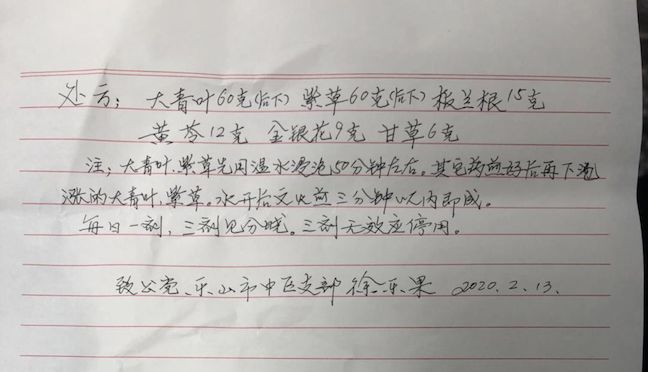 处方：大青叶60克(后下) 紫草60克(后下) 板兰根15克
黄芩12克 金银花9克 甘草6克
注：大青叶、紫草先用温水浸泡50分钟左右。其它药煎好后再下泡
涨的大青叶、紫草。水开后文火煎三分钟以内即成。
每日一剂，三剂见分晓。三剂无效应停用。
致公党乐山市中区支部 徐乐果 2020.2.13.